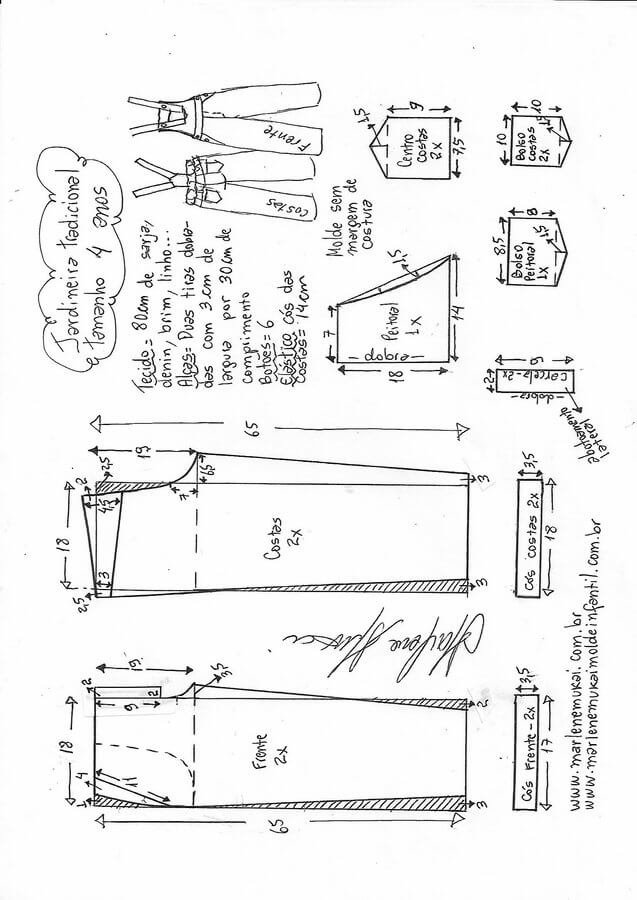 Jardineira tradicional
e tamanho 4 anos
Tecido = 80cm de sarja,
denin, brim, linho...
Alças = Duas tiras dobra-
das com 3 cm de
largura por 30 cm de
comprimento
Botões = 6
Elástico cós das
costas = 14 cm
Frente
Costas
Molde sem
margem de
costura
9
1,5
Centro
Costas
2x
7,5
10
10
1,5
Bolso
costas
2x
8
8,5
1,5
Bolso
Peitoral
1x
7
1,5
Peitoral
1x
-dobra-
14
18
9
2
carcela-2x
-dobra-
abotoamento
lateral
65
19
2,5
2
4,5
7
6,5
3
18
3
2,5
3
Costas
2x
3,5
Cós costas 2x
18
19
2
2
9
3,5
2
18
4
11
1
3
Frente
2x
65
3,5
Cós Frente - 2x
17
www.marlenemukai.com.br
www.marlenemukaimoldeinfantil.com.br